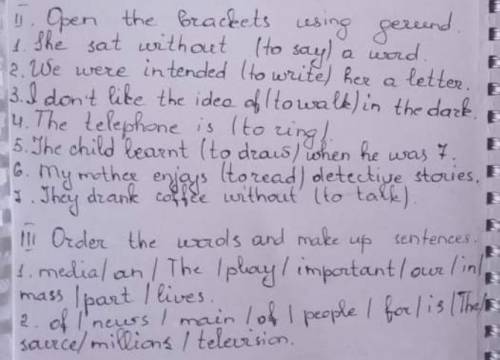 II. Open the brackets using gerund.
1. She sat without (to say) a word.
2. We were intended (to write) her a letter.
3. I don't like the idea of (to walk) in the dark.
4. The telephone is (to ring).
5. The child learnt (to draw) when he was 7.
6. My mother enjoys (to read) detective stories.
7. They drank coffee without (to talk).
III Order the words and make up sentences.
1. media / an / The / play / important / our / in /
mass / part / lives.
2. of / news / main / of / people / for / is / The /
source / millions / television.